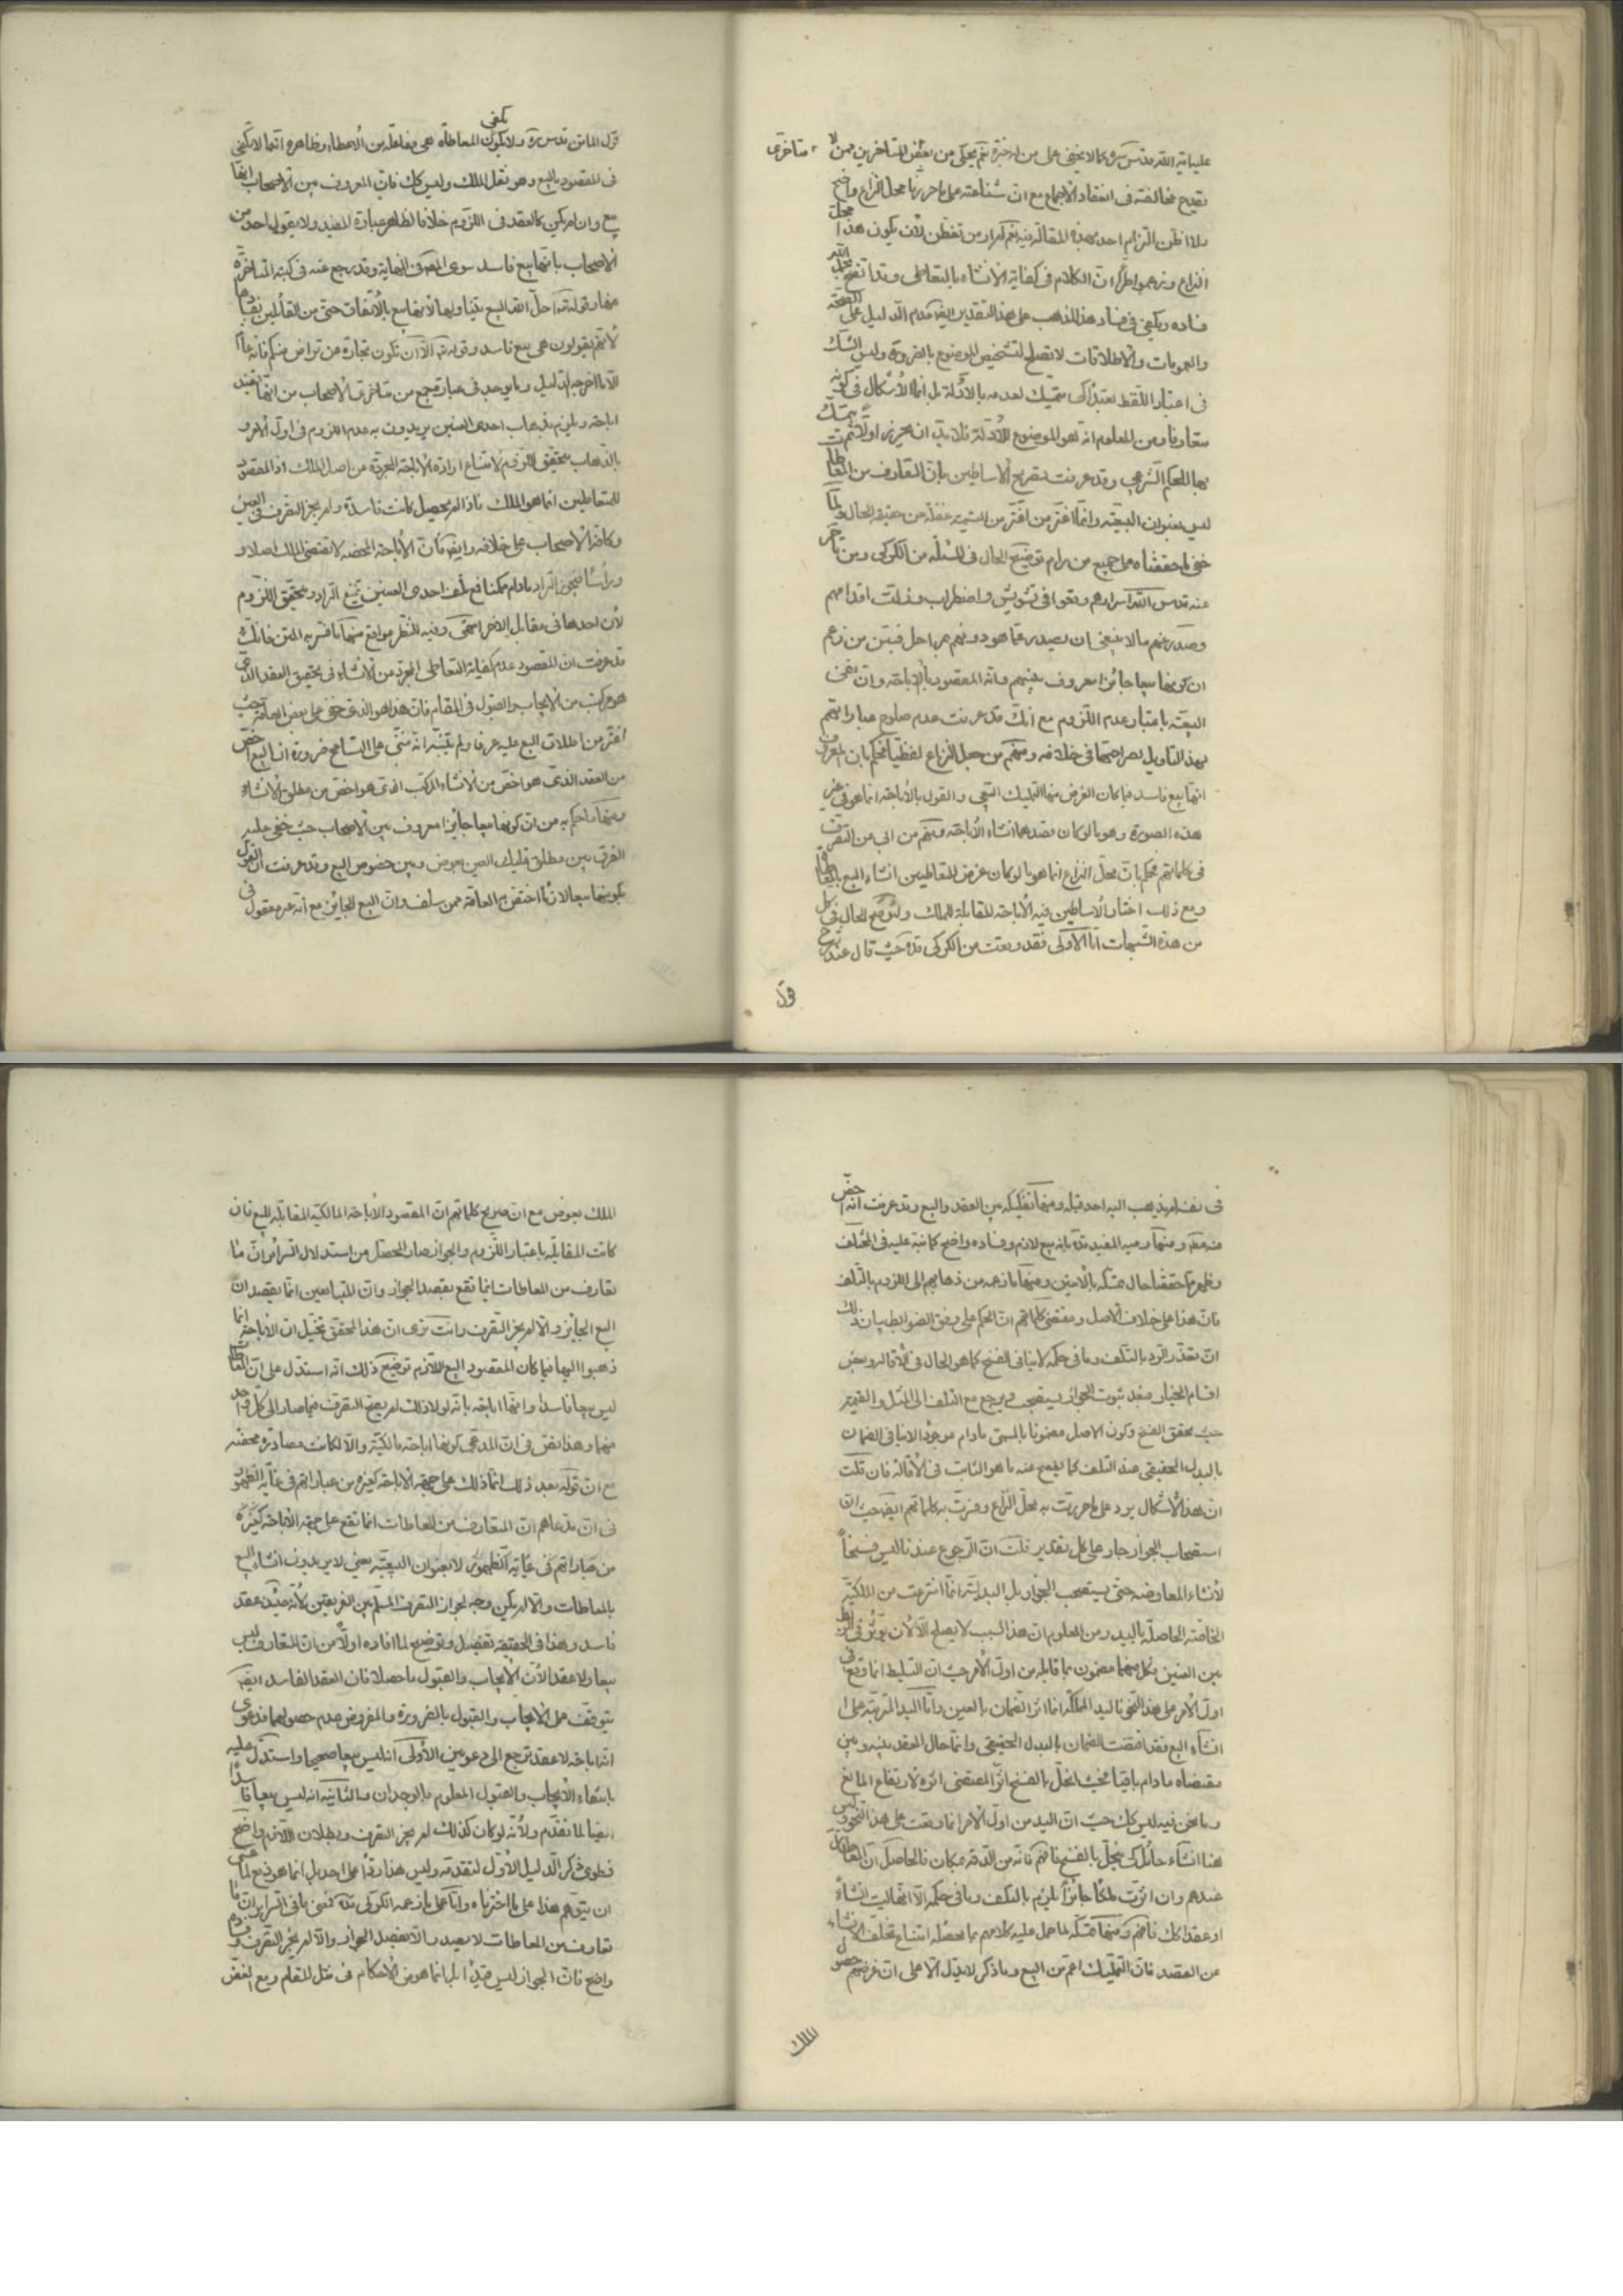 عليه اية الله قدس سره كما لا يخفى على من له خبرة نعم يحكى من بعض المتأخرين ممن لا
متاخرى
يقدح مخالفته فى انعقاد الاجماع مع ان شناعته على ما حررنا محل النزاع واضح
فلا اظن التزام احد بهذه المقالة نعم من تفطن لان يكون هذا محل
النزاع وزعموا طرا ان الكلام فى كفاية الانشاء بالتعاطى وقد اتضح لك بحمد الله
فساده ويكفى فى فساد هذا المذهب على هذا التقدير ايضا عدم الدليل على الصحة
والعمومات والاطلاقات لا تصلح لتشخيص الموضوع بالضرورة وليس الشك
فى اعتبار اللفظ تعبدا كى يتمسك لعدمه بالادلة بل انما الاشكال فى كونه
متعارفا ومن المعلوم انه هو الموضوع للادلة فلا بد ان يحرز اولا ثم يتمسك
بها للحكم الشرعى وقد عرفت تصريح الاساطين بان المتعارف من المعاطاة
ليس بعنوان البيعية وانما اغتر من اغتر من التسمية غفلة عن حقيقة الحال ولما
خفى ما حققناه على جميع من رام توضيح الحال فى المسئلة من الكركى ومن تأخر
عنه قدس الله اسرارهم وقعوا فى تشويش واضطراب وزلت اقدامهم
وصدر عنهم ما لا ينبغى ان يصدر عما هو دونهم بمراحل فبين من زعم
ان كونها بيعا جائزا معروف بينهم وانه المقصود بالاباحة وان نفى
البيعية باعتبار عدم اللزوم مع انك قد عرفت عدم صلوح عباراتهم
بهذا التأويل لصراحتها فى خلافه ومنهم من جعل النزاع لفظيا فحكم بان المعروف
انها بيع فاسد فيما كان الغرض منها التمليك البيعى والقول بالاباحة انما هو فى غير
هذه الصورة وهو ما لو كان قصدهما انشاء الاباحة ومنهم من ابى عن التصرف
فى كلماتهم فحكم بان محل النزاع انما هو ما لو كان غرض المتعاطيين انشاء البيع بالمعاطاة
ومع ذلك اختار الاساطين فيه الاباحة المقابلة للملك ولنوضح الحال فى كل
من هذه الشبهات اما الاولى فقد وقعت من الكركى قده حيث قال عند شرح
قول
قول الماتن قدس سره ولا يكون المعاطاة هى مفاعلة من الاعطاء وظاهره انها لا تكفى
يكفى
فى المقصود بالبيع وهو نقل الملك وليس كك فان المعروف بين الاصحاب انها
بيع وان لم يكن كالعقد فى اللزوم خلافا لظاهر عبارة المفيد ولا يقول احد من
الاصحاب بانها بيع فاسد سوى المص فى النهاية وقد رجع عنه فى كتبه المتأخرة
عنها وقوله تع احل الله البيع يتناولها لانها بيع بالاتفاق حتى من القائلين بفسادها
لانهم يقولون هى بيع فاسد وقوله تع الا ان تكون تجارة عن تراض منكم فانه عام
الا ما اخرجه الدليل وما يوجد فى عبارة جمع من متأخرى الاصحاب من انها تفيد
اباحة ويلزم بذهاب احدى العينين يريدون به عدم اللزوم فى اول الامر و
بالذهاب يتحقق اللزوم لامتناع ارادة الاباحة المجردة عن اصل الملك اذ المقصود
للمتعاطيين انما هو الملك فاذا لم يحصل كانت فاسدة ولم يجز التصرف فى العين
وكافة الاصحاب على خلافه وايضا فان الاباحة المحضة لا تقتضى الملك اصلا و
ورأسا فيجوز التراد ما دام ممكنا فمع تلف احدى العينين يمتنع التراد ويتحقق اللزوم
لان احدهما فى مقابل الاخر انتهى وفيه للنظر مواقع منها ما فسر به المتن فانك
قد عرفت ان المقصود عدم كفاية التعاطى المجرد من الانشاء فى تحقق العقد الذى
هو مركب من الايجاب والقبول فى المقام فان هذا هو الذى خفى على بعض العامة حيث
اغتر من اطلاق البيع عليه عرفا ولم يتنبه انه مبنى على التسامح ضرورة ان البيع اخص
من العقد الذى هو اخص من الانشاء المركب الذى هو اخص من مطلق الانشاء
ومنها ما حكم به من ان كونها بيعا جائزا معروف بين الاصحاب حيث خفى عليه
الفرق بين مطلق تمليك العين بعوض وبين خصوص البيع وقد عرفت ان القول
بكونها بيعا لازما اختص به العامة ممن سلف وان البيع الجائز مع انه غير معقول فى
فى نفسه لم يذهب اليه احد قبله ومنها تفكيكه بين العقد والبيع وقد عرفت انه اخص
منه ومنها رميه المفيد قده بانه بيع لازم وفساده واضح كما نبه عليه فى المختلف
وظهر مما حققنا حال تمسكه بالايتين ومنها ما زعمه من ذهابهم الى اللزوم بالتلف
فان هذا على خلاف الاصل ومقتضى كلماتهم ان الحكم على وفق الضوابط بيان ذلك
ان تعذر الرد بالتلف وما فى حكمه لا ينافى الفسخ كما هو الحال فى الاقالة وبعض
اقسام الخيار فبعد ثبوت الجواز يستصحب ويرجع مع التلف الى المثل والقيمة
حيث يتحقق الفسخ وكون الاصل مضمونا بالمسمى ما دام موجودا لا ينافى الضمان
بالبدل الحقيقى عند التلف كما يفصح عنه ما هو الثابت فى الاقالة فان قلت
ان هذا الاشكال يرد على ما حررت به محل النزاع وفسرت به كلماتهم ايضا حيث ان
استصحاب الجواز جار على كل تقدير قلت ان الرجوع عندنا ليس فسخا
لانشاء المعاوضة حتى يستصحب الجواز بل البدلية انما انتزعت من الملكية
الخاصة الحاصلة باليد ومن المعلوم ان هذا السبب لا يصلح الا لان يؤثر فى الربط
بين العينين فكل منهما مضمون بما قابله من اول الامر حيث ان التسليط انما وقع فى
اول الامر على هذا النحو فاليد المملكة انما اثر الضمان بالعين واما اليد المترتبة على
انشاء البيع فقد اقتضت الضمان بالبدل الحقيقى وانما حال العقد بينه وبين
مقتضاه ما دام باقيا فحيث انحل بالفسخ اثر المقتضى اثره لارتفاع المانع
وما نحن فيه ليس كك حيث ان اليد من اول الامر انما وقعت على هذا النحو وليس
هنا انشاء حائل كى ينحل بالفسخ فافهم فانه من الدقة بمكان فالحاصل ان المعاطاة
عندهم وان اثرت ملكا جائزا يلزم بالتلف وما فى حكمه الا انها ليست انشاء
او عقدا كك فافهم ومنها تمسكه لما حمل عليه كلامهم بما محصله امتناع تخلف الانشاء
عن القصد فان التمليك اعم من البيع وما ذكر لا يدل الا على ان غرضهم حصول
الملك
الملك بعوض مع ان صريح كلماتهم ان المقصود الاباحة المالكية المقابلة للبيع فان
كانت المقابلة باعتبار اللزوم والجواز صار المحصل من استدلال السرائر ان ما
تعارف من المعاطات انما تقع بقصد الجواز وان المتبايعين انما يقصدان
البيع الجائز والا لم يجز التصرف وانت ترى ان هذا المحقق تخيل ان الاباحة انما
ذهبوا اليها فيما كان المقصود البيع اللازم توضيح ذلك انه استدل على ان المعاطاة
ليس بيعا فاسدا وانها اباحة بانه لولا ذلك لم يصح التصرف فيما صار الى كل واحد
منهما وهذا نص فى ان المدعى كونها اباحة مالكية والا لكانت مصادرة محضة
مع ان قوله بعد ذلك انما ذلك على جهة الاباحة كغيره من عباراتهم فى غاية الظهور
فى ان مدعاهم ان المتعارف من المعاطات انما تقع على جهة الاباحة كغيره
من عباراتهم فى غاية الظهور لا بعنوان البيعية بمعنى لا يريدون انشاء البيع
بالمعاطات والا لم يكن وجه لجواز التصرف المسلم بين الفريقين لانه حينئذ عقد
فاسد وهذا فى الحقيقة تفصيل وتوضيح لما افاده اولا من ان المتعارف ليس
بيعا ولا عقدا لان الايجاب والقبول ما حصلا فان العقد الفاسد ايضا
يتوقف على الايجاب والقبول بالضرورة والمفروض عدم حصولهما فدعوى
انه اباحة لا عقد ترجع الى دعويين الاولى انه ليس بيعا صحيحا واستدل عليه
بانتفاء الايجاب والقبول المعلوم بالوجدان والثانية انه ليس بيعا فاسدا
ايضا لما تقدم ولانه لو كان كذلك لم يجز التصرف وبطلان اللازم واضح
فطوى ذكر الدليل الاول لتقدمه وليس هذا ردا على احد بل انما هو دفع لما عسى
ان يتوهم هذا على ما اخترناه واما على ما زعمه الكركى قده فمعنى ما فى السرائر ان ما
تعارف من المعاطات لا يقصد بها الا تفضيل الجواز والا لم يجز التصرف وفساده
واضح فان الجواز ليس قيدا بل انما هو من الاحكام فى مثل المقام ومع الغض